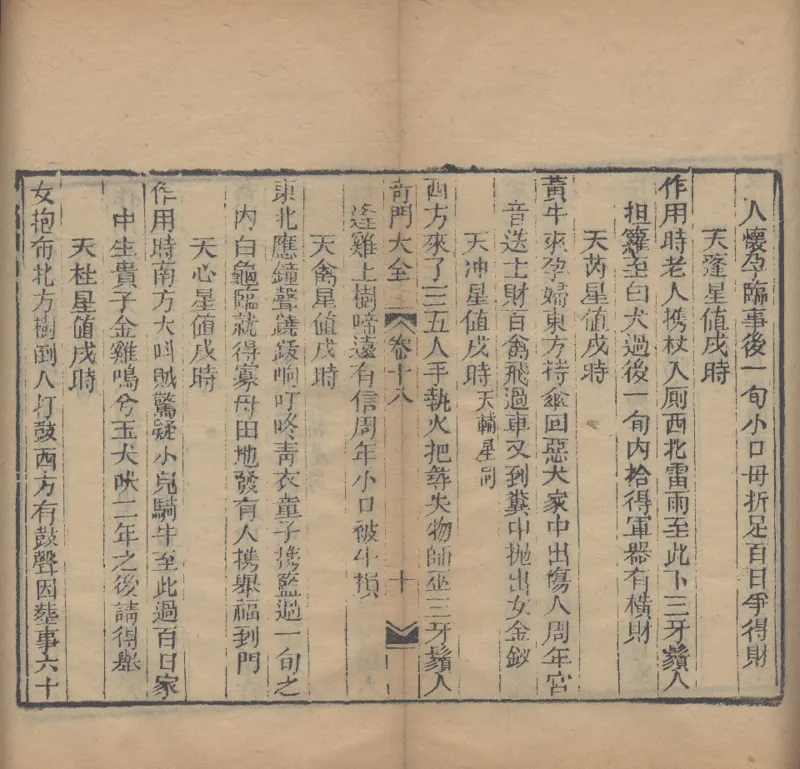 人懷孕臨事後一旬小口毋折足百日爭得財
天蓬星値戌時
作用時老人携杖入厠西北雷雨至此下三牙鬚人
担籮至白犬過後一旬内拾得軍器有橫財
天芮星値戌時
黃牛來孕婦東方持傘回惡犬家中出傷人周年官
音送土財百禽飛過車又到糞中抛出女金釵
天冲星値戌時天輔星同
西方來了三五人手執火把尋失物師巫三牙鬚人
奇門大全 卷十八 十
逢雞上樹啼遠有信周年小口被牛損
天禽星値戌時
東北應鐘聲鐃鈸响叮咚靑衣童子携籃過一旬之
内白龜臨就得寡母田地發有人携舉福到門
天心星値戌時
作用時南方大叫賊驚疑小兒騎牛至此過百日家
中生貴子金雞鳴兮玉犬吠二年之後請得舉
天柱星値戌時
女抱布北方樹倒人打鼓西方有鼓聲因塟事六十